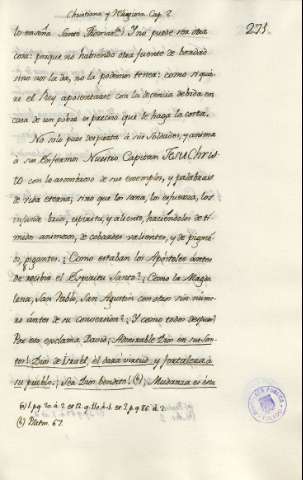 Christiana y Magiorn. Cap. 2
271.
lo enseña Santo Thomas(a) I no puede ser otra
cosa: porque no habiendo otra fuente de bondad
sino en la de, no la podemos tener: como si qui
re el Rey aposentarse con la decencia debida en
casa de un pobre es preciso que le haga la costa.
No solo pues despierta à sus Soldados, y anima
à sus Enfermos Nuestro Capitan JESU Chris
to con lo asombroso de sus exemplos, y palabras
de vida eterna; sino que los sana, los esfuerza, los
infunde brio, espiritu, y aliento, haciendoles de ti-
midos animosos, de cobardes valientes, y de pigmé-
os, gigantes. ¿Como estaban los Apóstoles ántes
de recibir el Espiritu Santo? ¿Como la Magda
lena, San Pablo, San Agustin con otros sin núme
ro ántes de su conversion? ¿Y como todos despues?
Por eso exclama David: Admirable Dios en sus San-
tos! Dios de Israel, el dará virtud y fortaleza à
su pueblo: ¡Sea Dios bendito! (b) ¡Mudanza es ésta
(a) 1. p. 20. à 2. et 12. q. 110. à 1. et 3. p. 86 à 2.
(b) Psalm. 67.